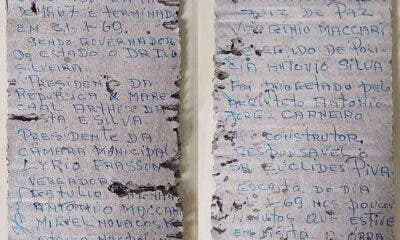 DE 1967 E TERMINADA
EM 31-1-69.
SENDO GOVERNADOR
DO ESTADO DR IVO
SILVEIRA.
PRESIDENTE DA
REPUBLICA MARE-
CHAL ARTHUR DA
COSTA E SILVA.
PRESIDENTE DA
CÂMARA MUNICIPAL
LYRIO FRASSON
VEREADOR
GETULIO
ANTONIO MACCARI
MIGUEL NOVACOSK
JUIZ DE PAZ
VERGINIO MACCARI
DE POLI
ANTONIO SILVA
FOI PROJETADO PELO
ARQUITETO ANTONIO
JORGE CARNEIRO
CONSTRUTOR
RESPONSAVEL
EUCLIDES PIVA
ESCRITA DO DIA
1-69 NOS POUCOS
MINUTOS QUE ESTIVE
EM VISITA A OBRA